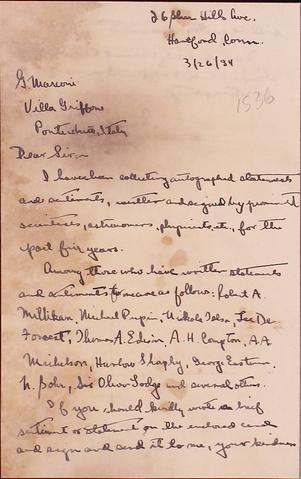 26 Hill Ave.
Hartford, Conn.
3/26/34
1536
G. Marconi
Villa Griffone
Pontecchio, Italy
Dear Sir:-
I have been collecting autographed statements
and sentiments, written and signed by prominent
scientists, astronomers, physicists, etc., for the
past five years.
Among those who have written statements
and sentiments to me are as follows: Robert A.
Millikan, Michael Pupin, Nikola Tesla, Lee De
Forest, Thomas A. Edison, A. H. Compton, A.A.
Michelson, Harlow Shapley, George Eastman,
N. Bohr, Sir Oliver Lodge and several others.
If you should kindly write a brief
sentiment or statement on the enclosed card
and sign and send it to me, your kindness